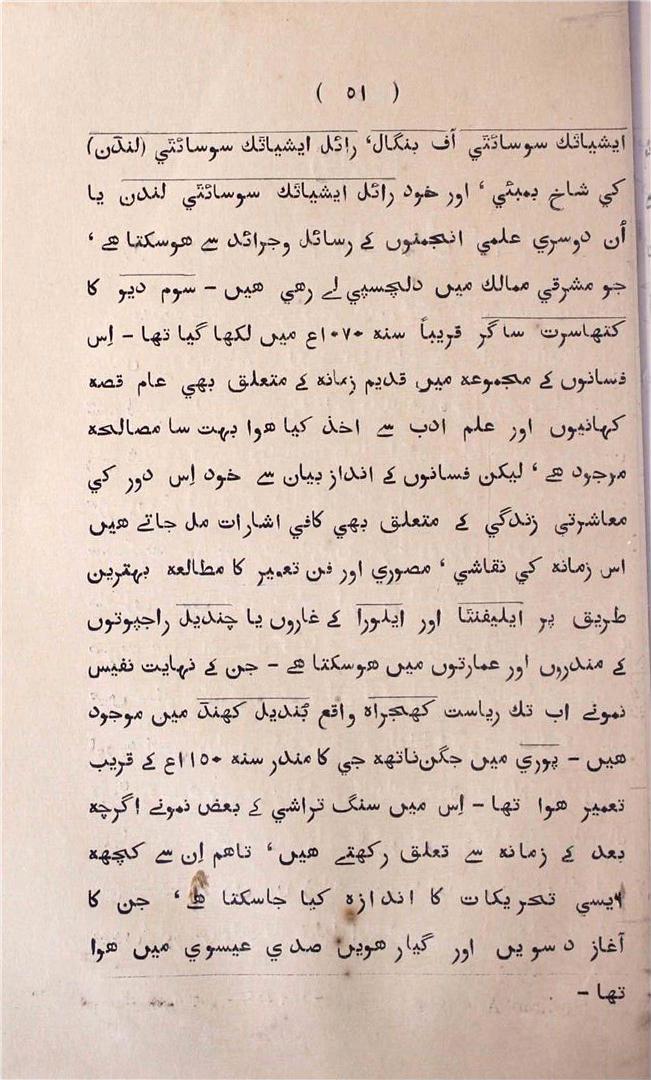 ( ۵۱ )
ایشیاٹک سوسائٹی آف بنگال، رائل ایشیاٹک سوسائٹی (لندن)
کی شاخ بمبئی، اور خود رائل ایشیاٹک سوسائٹی لندن یا
اُن دوسری علمی انجمنوں کے رسائل وجرائد سے ہوسکتا ہے،
جو مشرقی ممالک میں دلچسپی لے رہی ہیں - سوم دیو کا
کتھاسرت ساگر قریباً سنہ ۱۰۷۰ع میں لکھا گیا تھا - اِس
فسانوں کے مجموعہ میں قدیم زمانہ کے متعلق بھی عام قصہ
کہانیوں اور علم ادب سے اخذ کیا ہوا بہت سا مصالحہ
موجود ہے، لیکن فسانوں کے انداز بیان سے خود اِس دور کی
معاشرتی زندگی کے متعلق بھی کافی اشارات مل جاتے ہیں
اس زمانہ کی نقاشی، مصوری اور فن تعمیر کا مطالعہ بہترین
طریق پر ایلیفنٹا اور ایلورا کے غاروں یا چندیل راجپوتوں
کے مندروں اور عمارتوں میں ہوسکتا ہے - جن کے نہایت نفیس
نمونے اب تک ریاست کھجراہ واقع بُندیل کھنڈ میں موجود
ہیں - پوری میں جگن ناتھ جی کا مندر سنہ ۱۱۵۰ع کے قریب
تعمیر ہوا تھا - اِس میں سنگ تراشی کے بعض نمونے اگرچہ
بعد کے زمانہ سے تعلق رکھتے ہیں، تاہم اِن سے کچھ
ایسی تحریکات کا اندازہ کیا جاسکتا ہے، جن کا
آغاز دسویں اور گیارھویں صدی عیسوی میں ہوا
تھا -